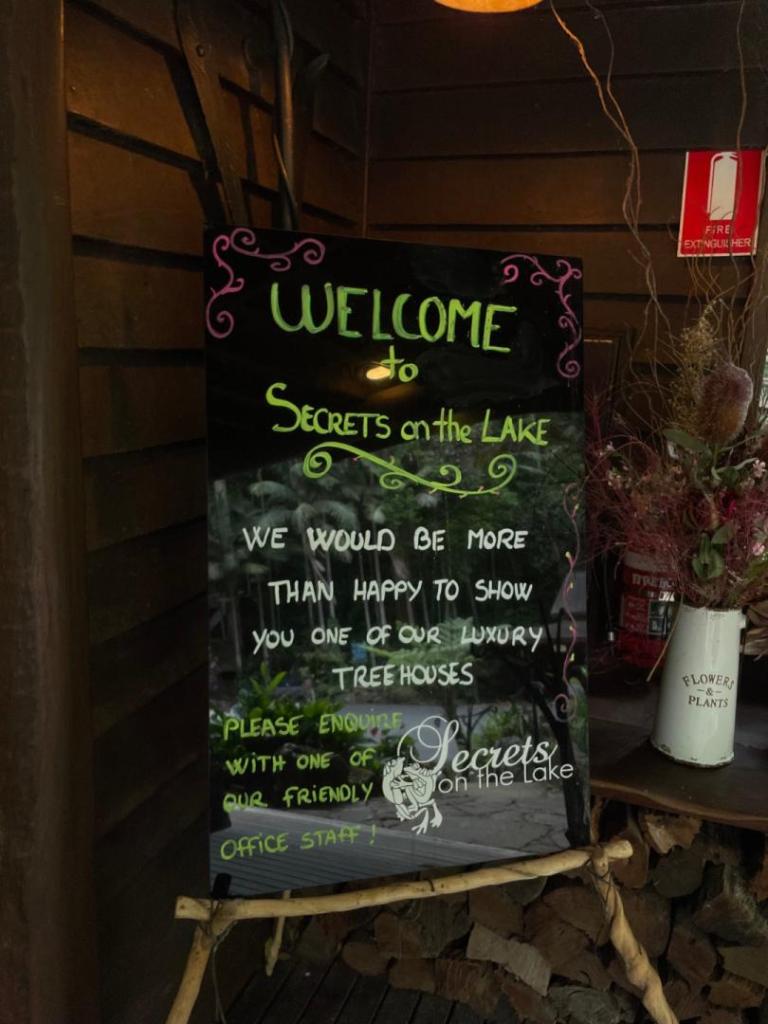 WELCOME
to
SECRETS on the LAKE
WE WOULD BE MORE
THAN HAPPY TO SHOW
YOU ONE OF OUR LUXURY
TREEHOUSES
PLEASE ENQUIRE
WITH ONE OF
OUR FRIENDLY
OFFICE STAFF!
Secrets
on the Lake
FIRE
EXTINGUISHER
FLOWERS
&
PLANTS